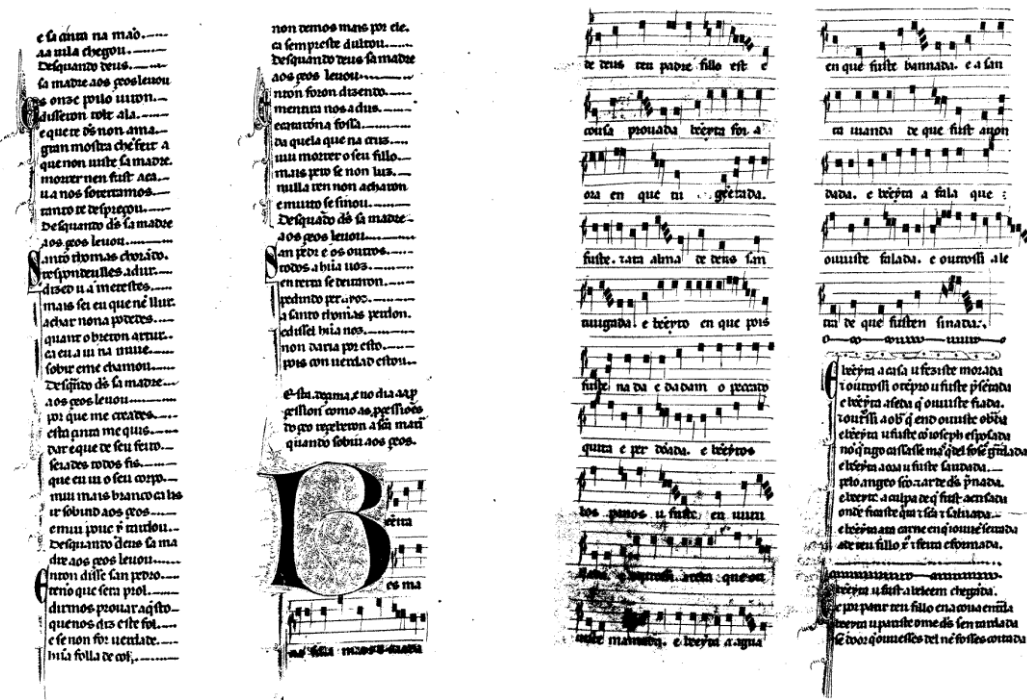 e sa cinta na mão.
aa uila chegou.
Desquando deus.
sa madre aos çeos leuou
s onze poilo uiron.
disseron tol ala.
e que te d̃s non ama.
gran mostra ch é feit a
que non uiste sa madre.
morrer nen fust aca.
u a nos soterramos.
tanto te despreçou.
Desquanto d̃s sa madre
aos çeos leuou.
Santo thomas chorãdo.
respondeulles adur.
dizẽd u a metestes.
mais sei eu que nẽ llur.
achar nona podedes.
quant o breton artur.
ca eu a ui na nuue.
sobir e me chamou.
Desq̃ndo d̃s sa madre.
aos çeos leuou.
por que me creades.
esta çinta me quis.
dar e que de seu feito.
seiades todos fis.
que eu ui o seu corpo.
mui mais branco ca lis
ir sobind aos çeos
e mui pouc y tardou.
Desquando deus sa ma
dre aos çeos leuou.
Enton disse san pedro.
teno que sera prol.
dirmos prouar aq̃sto
que nos diz este fol.
e se non for uerdade.
hũa folla de col.
non demos mais por ele.
ca sempr este dultou.
Desquando deus sa madre
aos çeos leuou.
Enton foron dizendo.
mentira nos adus.
e cataron a fossa.
da quela que na cruz.
uiu morrer o seu fillo.
mais pero se non luz.
nulla ren non acharon
e muito se sinou.
Desquãdo d̃s sa madre
aos çeos leuou.
San pedr e os outros.
todos a hũa uoz.
en terra se deitaron.
pedindo per
a santo thomas perdon.
e dissel hũa uez.
non daria por esto.
pois con uerdad estou.
Esta deçima, e no dia aa p
çession como as pçessiões
do çeo reçeberon a sc̃a mari
quando sobiu aos çeos.
Bẽeita
es ma
ria filla madr e criada
de deus teu padre fillo est e
cousa prouada bẽeyta foi a
ora en que tu geerada.
fuste. e a ta alma de deus san
tiuigada. e bẽeyto en que pois
fuste nada e da dam o peccato
quita e per dõada. e bẽeytos
dos panos u fust en uuru
uiste mamada. e bẽeyta a agua
en que fuste bannada. e a san
ta uianda de que fust auon
dada. e bẽeyta a fala que
ouuiste falada. e outrossi a le
tra de que fusten sinada.
Bẽeyta a casa u feziste morada
e outrossi o tẽpro u fuste p̃sẽtada
e bẽeyta a seda q̃ ouuiste fiada.
e outrossi a ob̃ q̃ end ouuiste obrada
e bẽeyta u fuste cõ ioseph esposada
e bẽeyta a ora u fuste saudada.
pelo angeo
e bẽeyta a culpa de q̃ fust acusada
e bẽeyta ta carne en q̃ iouue serrada
de teu fillo e feita e formada.
Bẽeyta u fust a beleem chegada.
e por parir teu fillo en a coua entrada
bẽeyta u pariste ome d̃s sen tardada
se door q̃ ouuesses del nẽ fosses coitada